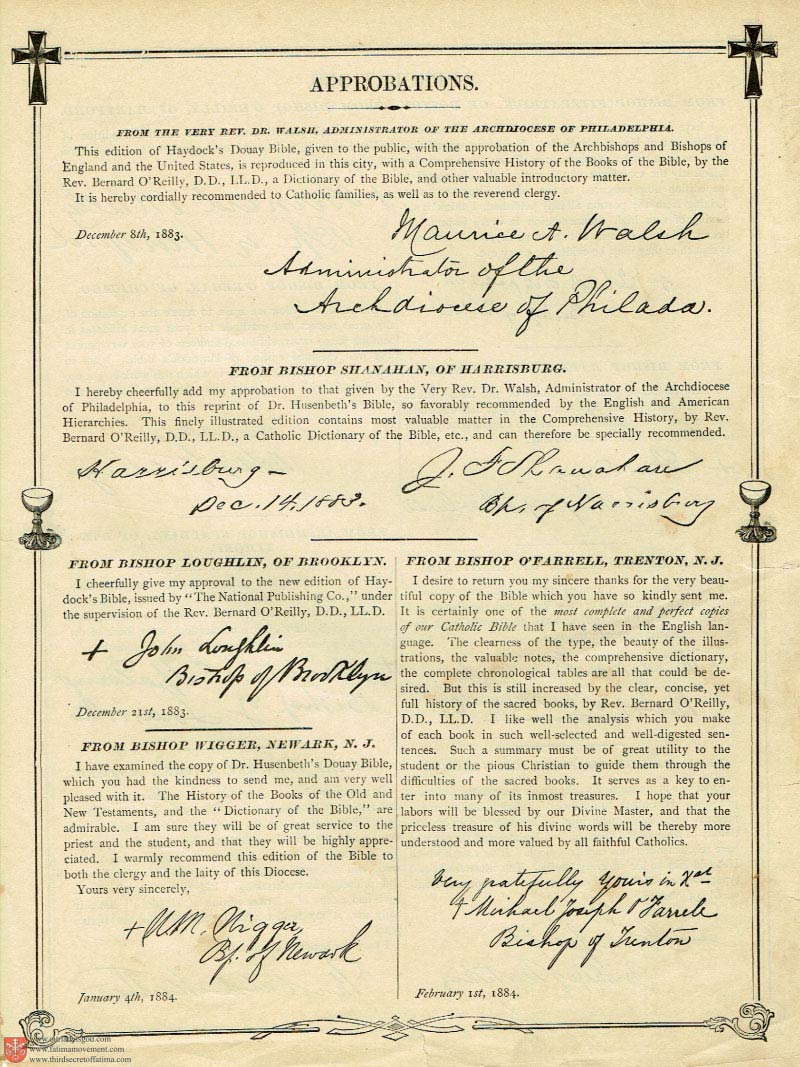 APPROBATIONS.
FROM THE VERY REV. DR. WALSH, ADMINISTRATOR OF THE ARCHDIOCESE OF PHILADELPHIA.
This edition of Haydock's Douay Bible, given to the public, with the approbation of the Archbishops and Bishops of
England and the United States, is reproduced in this city, with a Comprehensive History of the Books of the Bible, by the
Rev. Bernard O'Reilly, D.D., LL.D., a Dictionary of the Bible, and other valuable introductory matter.
It is hereby cordially recommended to Catholic families, as well as to the reverend clergy.
December 8th, 1883.
Maurice A. Walsh
Administrator of the
Archdiocese of Philada.
FROM BISHOP SHANAHAN, OF HARRISBURG.
I hereby cheerfully add my approbation to that given by the Very Rev. Dr. Walsh, Administrator of the Archdiocese
of Philadelphia, to this reprint of Dr. Husenbeth's Bible, so favorably recommended by the English and American
Hierarchies. This finely illustrated edition contains most valuable matter in the Comprehensive History, by Rev.
Bernard O'Reilly, D.D., LL.D., a Catholic Dictionary of the Bible, etc., and can therefore be specially recommended.
Harrisburg –
Dec. 14, 1883.
J. F. Shanahan
Bp. of Harrisburg
FROM BISHOP LOUGHLIN, OF BROOKLYN.
I cheerfully give my approval to the new edition of Hay-
dock's Bible, issued by "The National Publishing Co.," under
the supervision of the Rev. Bernard O'Reilly, D.D., LL.D.
+ John Loughlin
Bishop of Brooklyn
December 21st, 1883.
FROM BISHOP WIGGER, NEWARK, N. J.
I have examined the copy of Dr. Husenbeth's Douay Bible,
which you had the kindness to send me, and am very well
pleased with it. The History of the Books of the Old and
New Testaments, and the "Dictionary of the Bible," are
admirable. I am sure they will be of great service to the
priest and the student, and that they will be highly appre-
ciated. I warmly recommend this edition of the Bible to
both the clergy and the laity of this Diocese.
Yours very sincerely,
+ W. M. Wigger
Bp. of Newark
January 4th, 1884.
FROM BISHOP O'FARRELL, TRENTON, N. J.
I desire to return you my sincere thanks for the very beau-
tiful copy of the Bible which you have so kindly sent me.
It is certainly one of the most complete and perfect copies
of our Catholic Bible that I have seen in the English lan-
guage. The clearness of the type, the beauty of the illus-
trations, the valuable notes, the comprehensive dictionary,
the complete chronological tables are all that could be de-
sired. But this is still increased by the clear, concise, yet
full history of the sacred books, by Rev. Bernard O'Reilly,
D.D., LL.D. I like well the analysis which you make
of each book in such well-selected and well-digested sen-
tences. Such a summary must be of great utility to the
student or the pious Christian to guide them through the
difficulties of the sacred books. It serves as a key to en-
ter into many of its inmost treasures. I hope that your
labors will be blessed by our Divine Master, and that the
priceless treasure of his divine words will be thereby more
understood and more valued by all faithful Catholics.
Very gratefully Yours in Xst
+ Michael Joseph O'Farrell
Bishop of Trenton
February 1st, 1884.
www.fatimamovement.com
www.thirdsecretoffatima.com